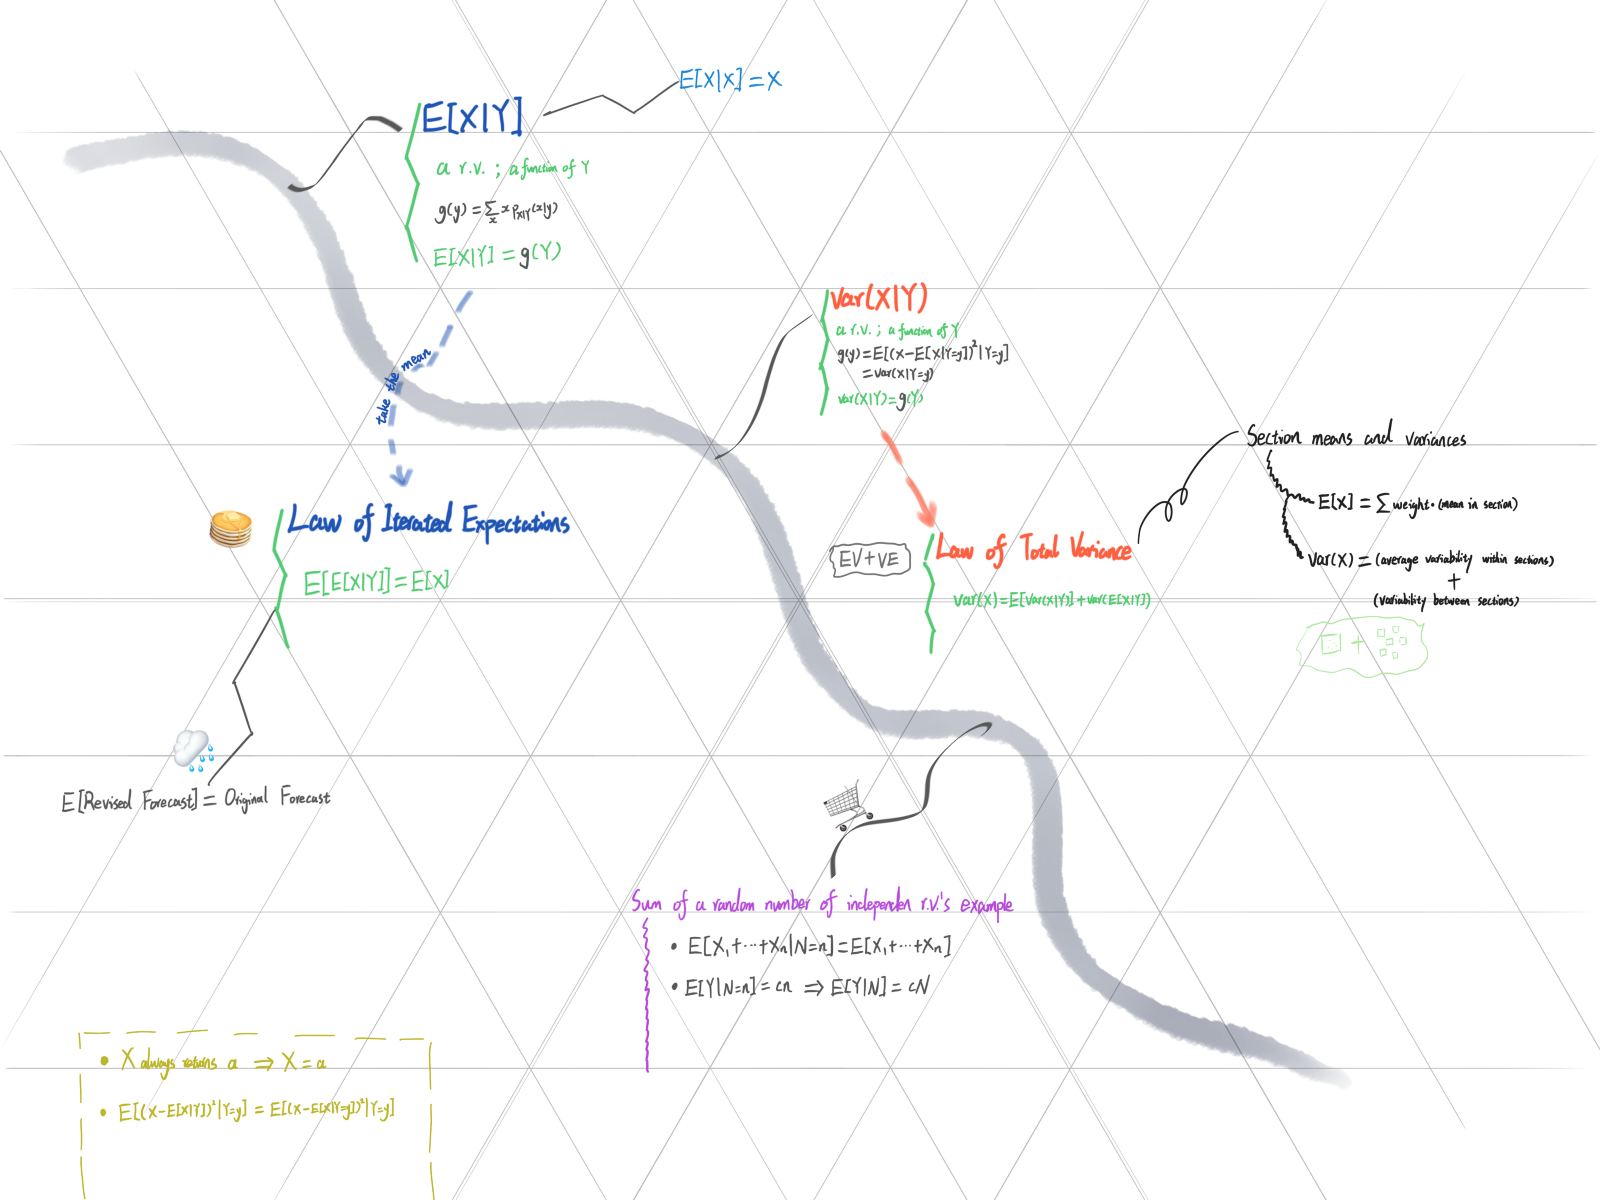 E[X|X] = X
E[X|Y]
a r.v. ; a function of Y
g(y) = ∑ₓ x p_X|Y (x|y)
E[X|Y] = g(Y)
take the mean
Law of Iterated Expectations
E[E[X|Y]] = E[X]
E[Revised Forecast] = Original Forecast
Var(X|Y)
a r.v. ; a function of Y
g(y) = E[(X-E[X|Y=y])²|Y=y]
= var(X|Y=y)
var(X|Y) = g(Y)
EV+VE
Law of Total Variance
Var(X) = E[Var(X|Y)] + var(E[X|Y])
Section means and variances
E[X] = ∑ weight · (mean in section)
Var(X) = (average variability within sections)
+
(variability between sections)
+
Sum of a random number of independen r.v.'s example
• E[X₁+···+Xn|N=n] = E[X₁+···+Xn]
• E[Y|N=n] = cn ⇒ E[Y|N] = cN
• X always returns a ⇒ X = a
• E[(X-E[X|Y])²|Y=y] = E[(X-E[X|Y=y])²|Y=y]